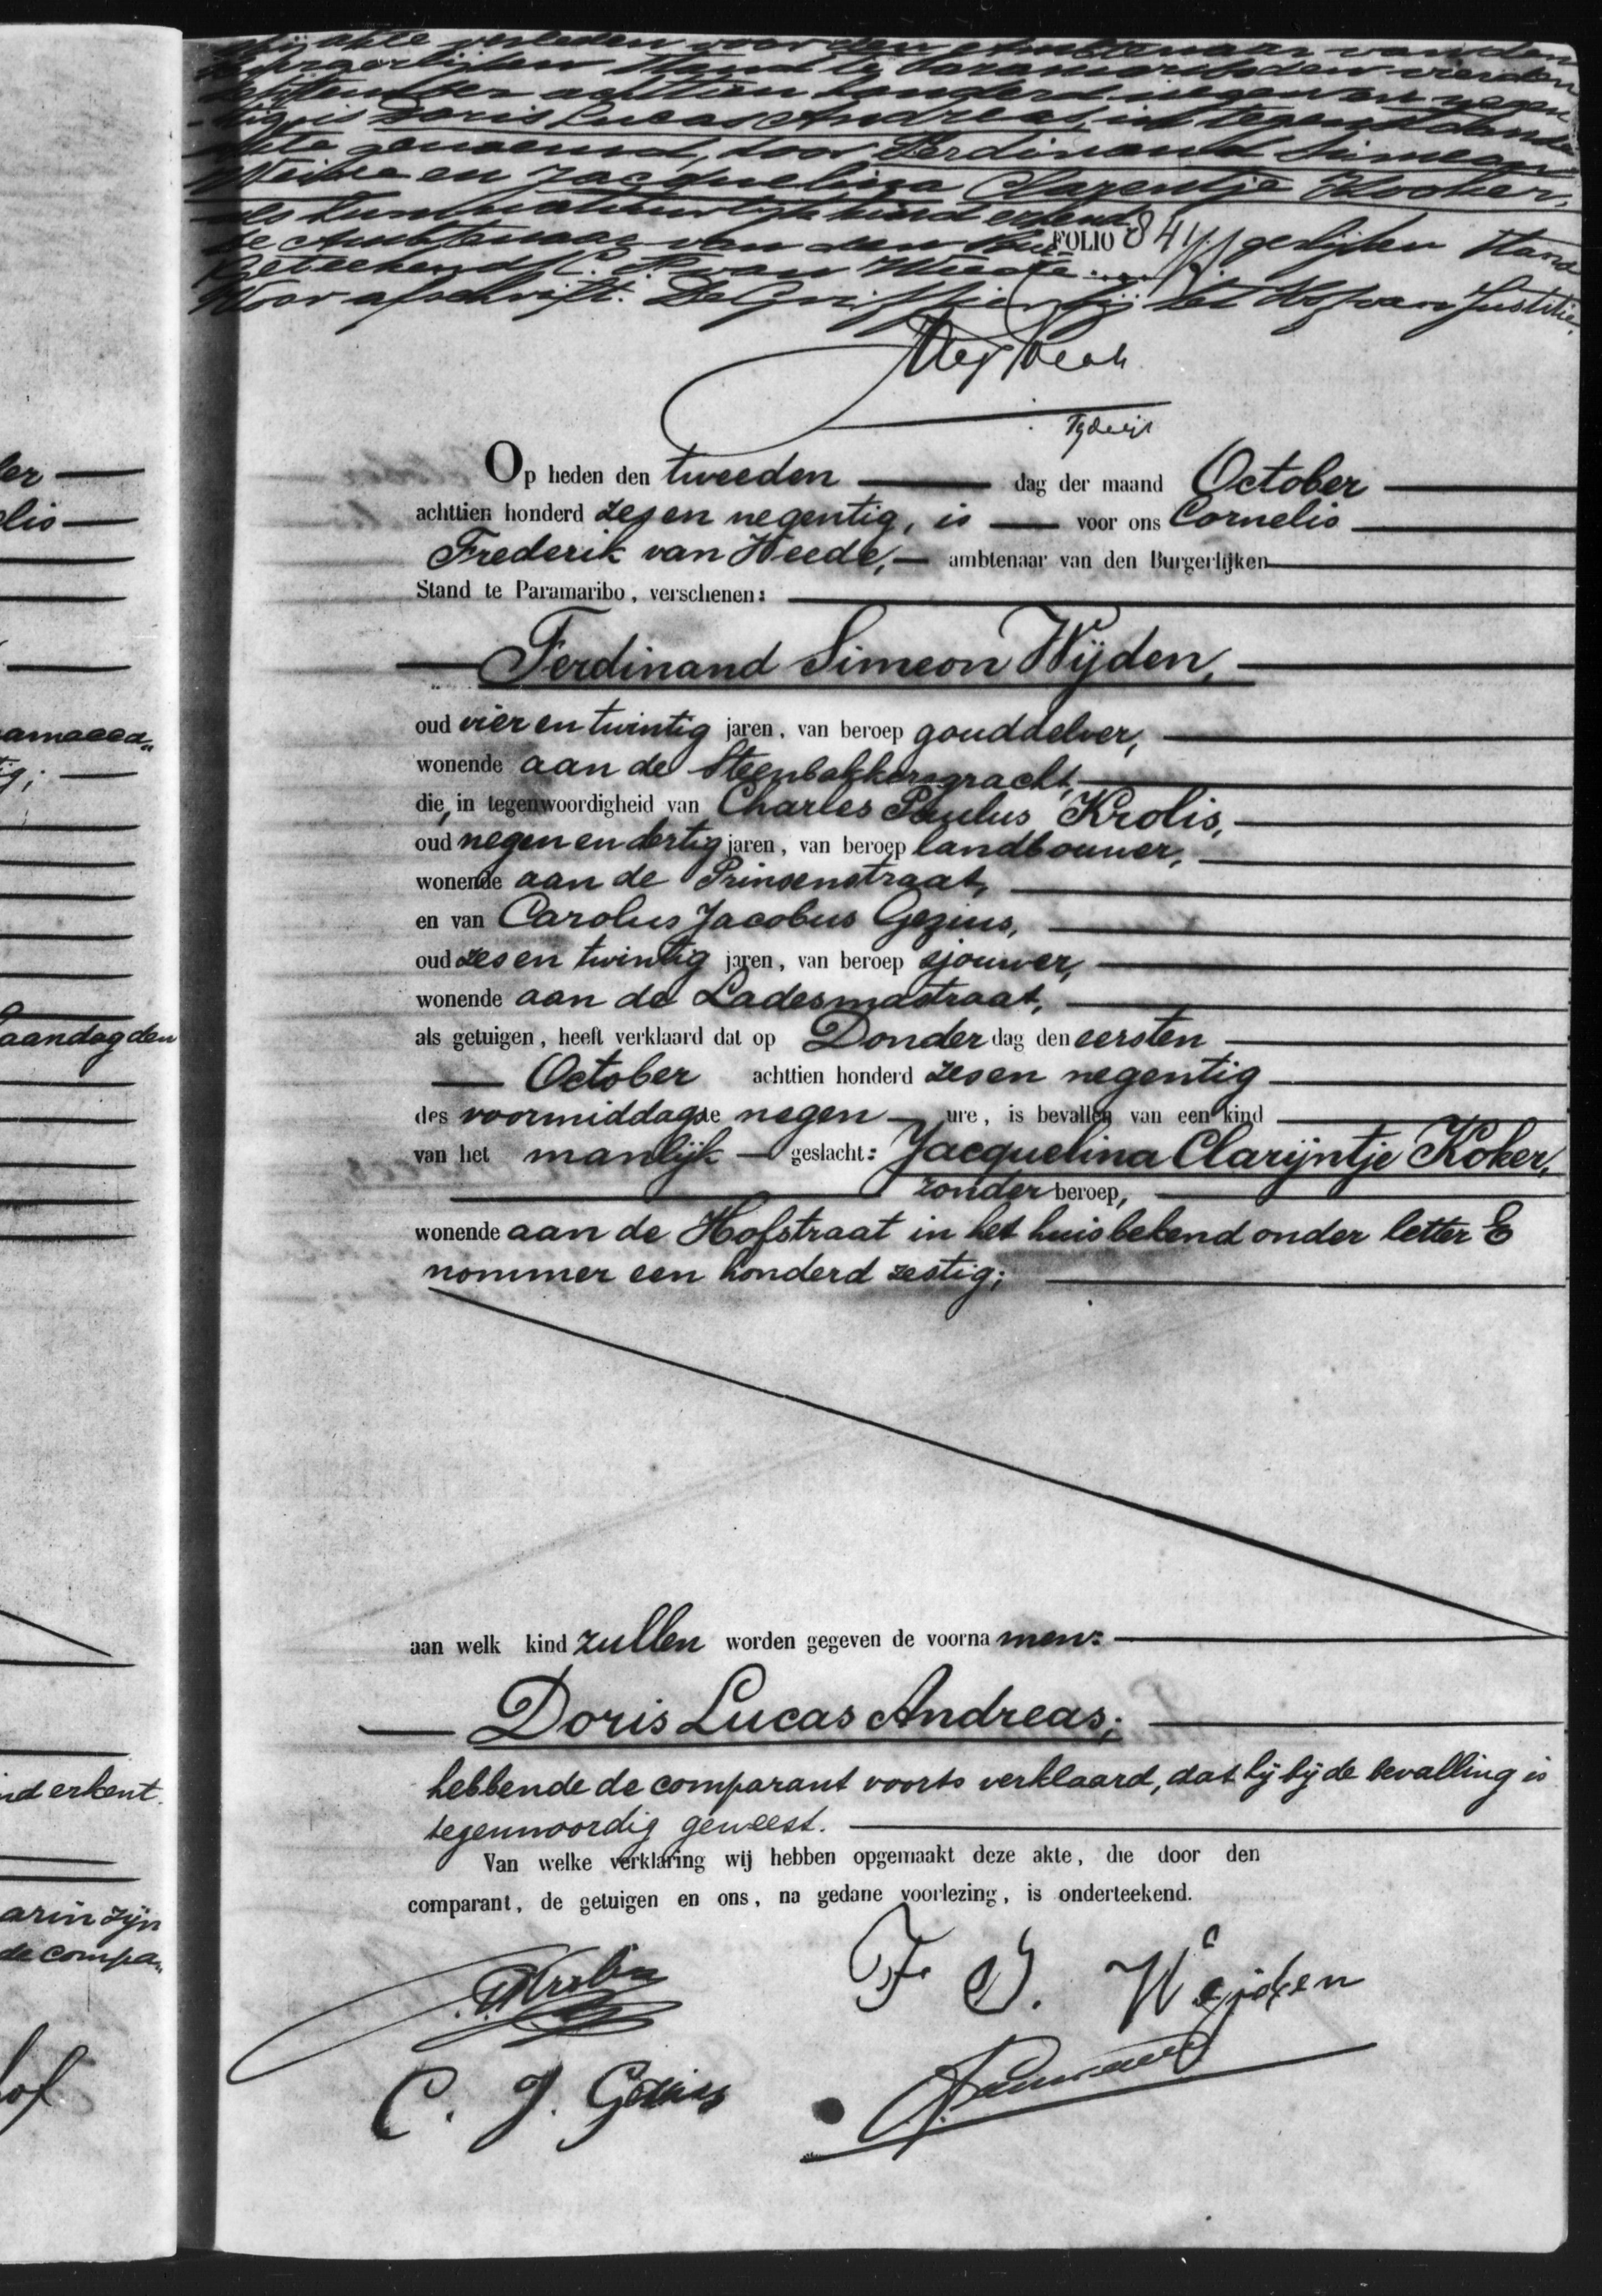 bij akte verleden voor den Ambtenaar van den
Burgerlijken Stand te Paramaribo den vierden
September achttien honderd negen en negen
-tig is Doris Lucas Andreas, in tegenstaande
akte genoemd, door Ferdinand Simeon
en Jacquelina Clarentje Kooker,
als hun natuurlijk kind erkend.
De Ambtenaar van den Bur gerlijken Stand
FOLIO 841
(Geteekend) C. F. van
Voor afschrift. De Griffier bij het Hof van Justitie,
Op heden den tweeden dag der maand October
achttien honderd zes en negentig, is voor ons Cornelis
Frederik van Heede, ambtenaar van den Burgerlijken
Stand te Paramaribo, verschenen:
Ferdinand Simeon Wijden,
oud vier en twintig jaren, van beroep gouddelver,
wonende aan de Steenbakkersgracht,
die, in tegenwoordigheid van Charles Paulus Krolis,
oud negen en dertig jaren, van beroep landbouwer,
wonende aan de Prinsenstraat,
en van Carolus Jacobus Gezius,
oud zes en twintig jaren, van beroep sjouwer,
wonende aan de Ladesmastraat,
als getuigen, heeft verklaard dat op Donder dag den eersten
October achttien honderd zes en negentig
des voormiddags te negen ure, is bevallen van een kind
van het manlijk geslacht: Jacquelina Clarijntje Koker,
zonder beroep,
wonende aan de Hofstraat in het huis bekend onder letter E
nommer een honderd zestig;
aan welk kind zullen worden gegeven de voorna men:
Doris Lucas Andreas;
hebbende de comparant voorts verklaard, dat hij bij de bevalling is
tegenwoordig geweest.
Van welke verklaring wij hebben opgemaakt deze akte, die door den
comparant, de getuigen en ons, na gedane voorlezing, is onderteekend.
Krolis
F. S. Wijden
C. J. Gezius
ler
elis
amacca„
ig;
aandag den
nd erkent.
arin zijn
de compa„
hof